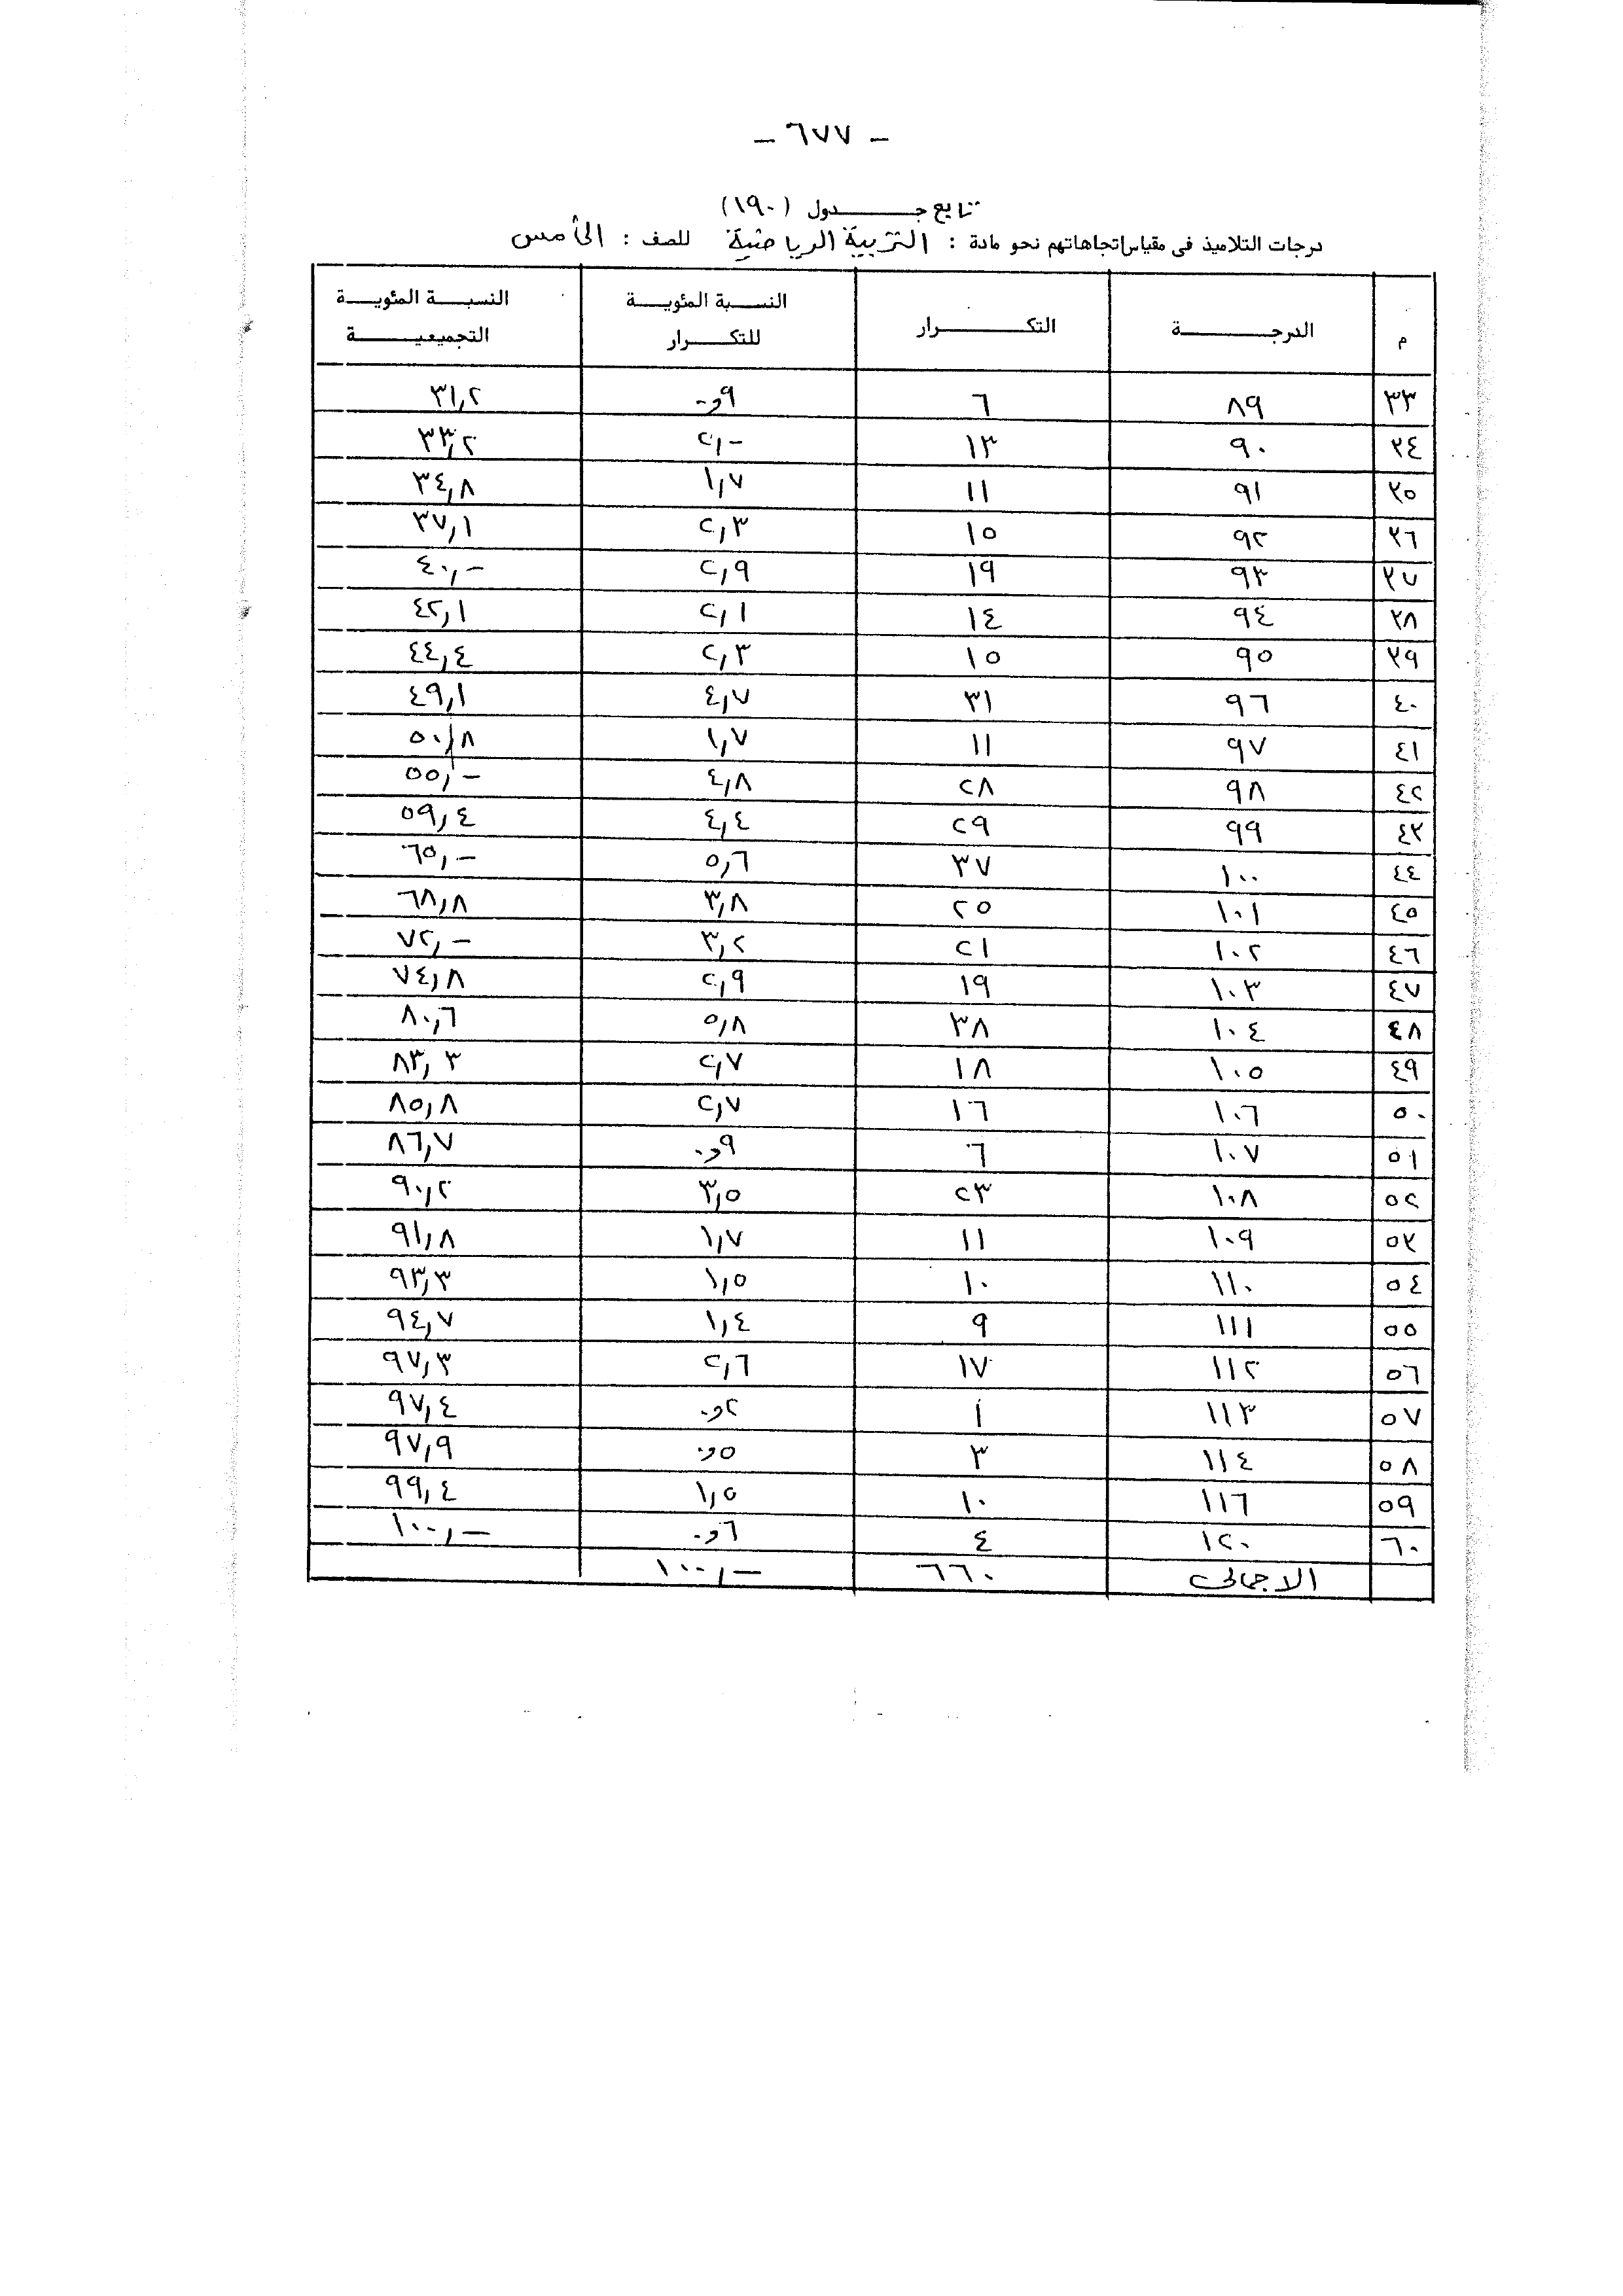 – ٦٧٧ –
تابع جدول (١٩٠)
درجات التلاميذ فى مقياس اتجاهاتهم نحو مادة : التربية الرياضية للصف : الخامس
م الدرجة التكرار النسبة المئوية للتكرار النسبة المئوية التجميعية
٣٣ ٨٩ ٦ ٩و٠ ٣١,٢
٣٤ ٩٠ ١٣ ٢,– ٣٣,٢
٣٥ ٩١ ١١ ١,٧ ٣٤,٨
٣٦ ٩٢ ١٥ ٢,٣ ٣٧,١
٣٧ ٩٣ ١٩ ٢,٩ ٤٠,–
٣٨ ٩٤ ١٤ ٢,١ ٤٢,١
٣٩ ٩٥ ١٥ ٢,٣ ٤٤,٤
٤٠ ٩٦ ٣١ ٤,٧ ٤٩,١
٤١ ٩٧ ١١ ١,٧ ٥٠,٨
٤٢ ٩٨ ٢٨ ٤,٨ ٥٥,–
٤٣ ٩٩ ٢٩ ٤,٤ ٥٩,٤
٤٤ ١٠٠ ٣٧ ٥,٦ ٦٥,–
٤٥ ١٠١ ٢٥ ٣,٨ ٦٨,٨
٤٦ ١٠٢ ٢١ ٣,٢ ٧٢,–
٤٧ ١٠٣ ١٩ ٢,٩ ٧٤,٨
٤٨ ١٠٤ ٣٨ ٥,٨ ٨٠,٦
٤٩ ١٠٥ ١٨ ٢,٧ ٨٣,٣
٥٠ ١٠٦ ١٦ ٢,٧ ٨٥,٨
٥١ ١٠٧ ٦ ٩و٠ ٨٦,٧
٥٢ ١٠٨ ٢٣ ٣,٥ ٩٠,٢
٥٣ ١٠٩ ١١ ١,٧ ٩١,٨
٥٤ ١١٠ ١٠ ١,٥ ٩٣,٣
٥٥ ١١١ ٩ ١,٤ ٩٤,٧
٥٦ ١١٢ ١٧ ٢,٦ ٩٧,٣
٥٧ ١١٣ ١ ٢و٠ ٩٧,٤
٥٨ ١١٤ ٣ ٥و٠ ٩٧,٩
٥٩ ١١٦ ١٠ ١,٥ ٩٩,٤
٦٠ ١٢٠ ٤ ٦و٠ ١٠٠,–
الاجمالى ٦٦٠ ١٠٠,–